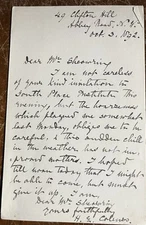 29 Clifton Hill
Abbey Road, N.W.
Oct. 3, 1892.
Dear Mr.
I am not careless
of your kind invitation to
South Place Institute this
evening, but the hoarseness
which plagued me somewhat
last Monday, obliges me to be
careful. & this sudden chill
in the weather has not im-
proved matters. I hoped
till noon today that I might
be able to come, but must
give it up. I am,
Dear Mr.
Yours faithfully
H.